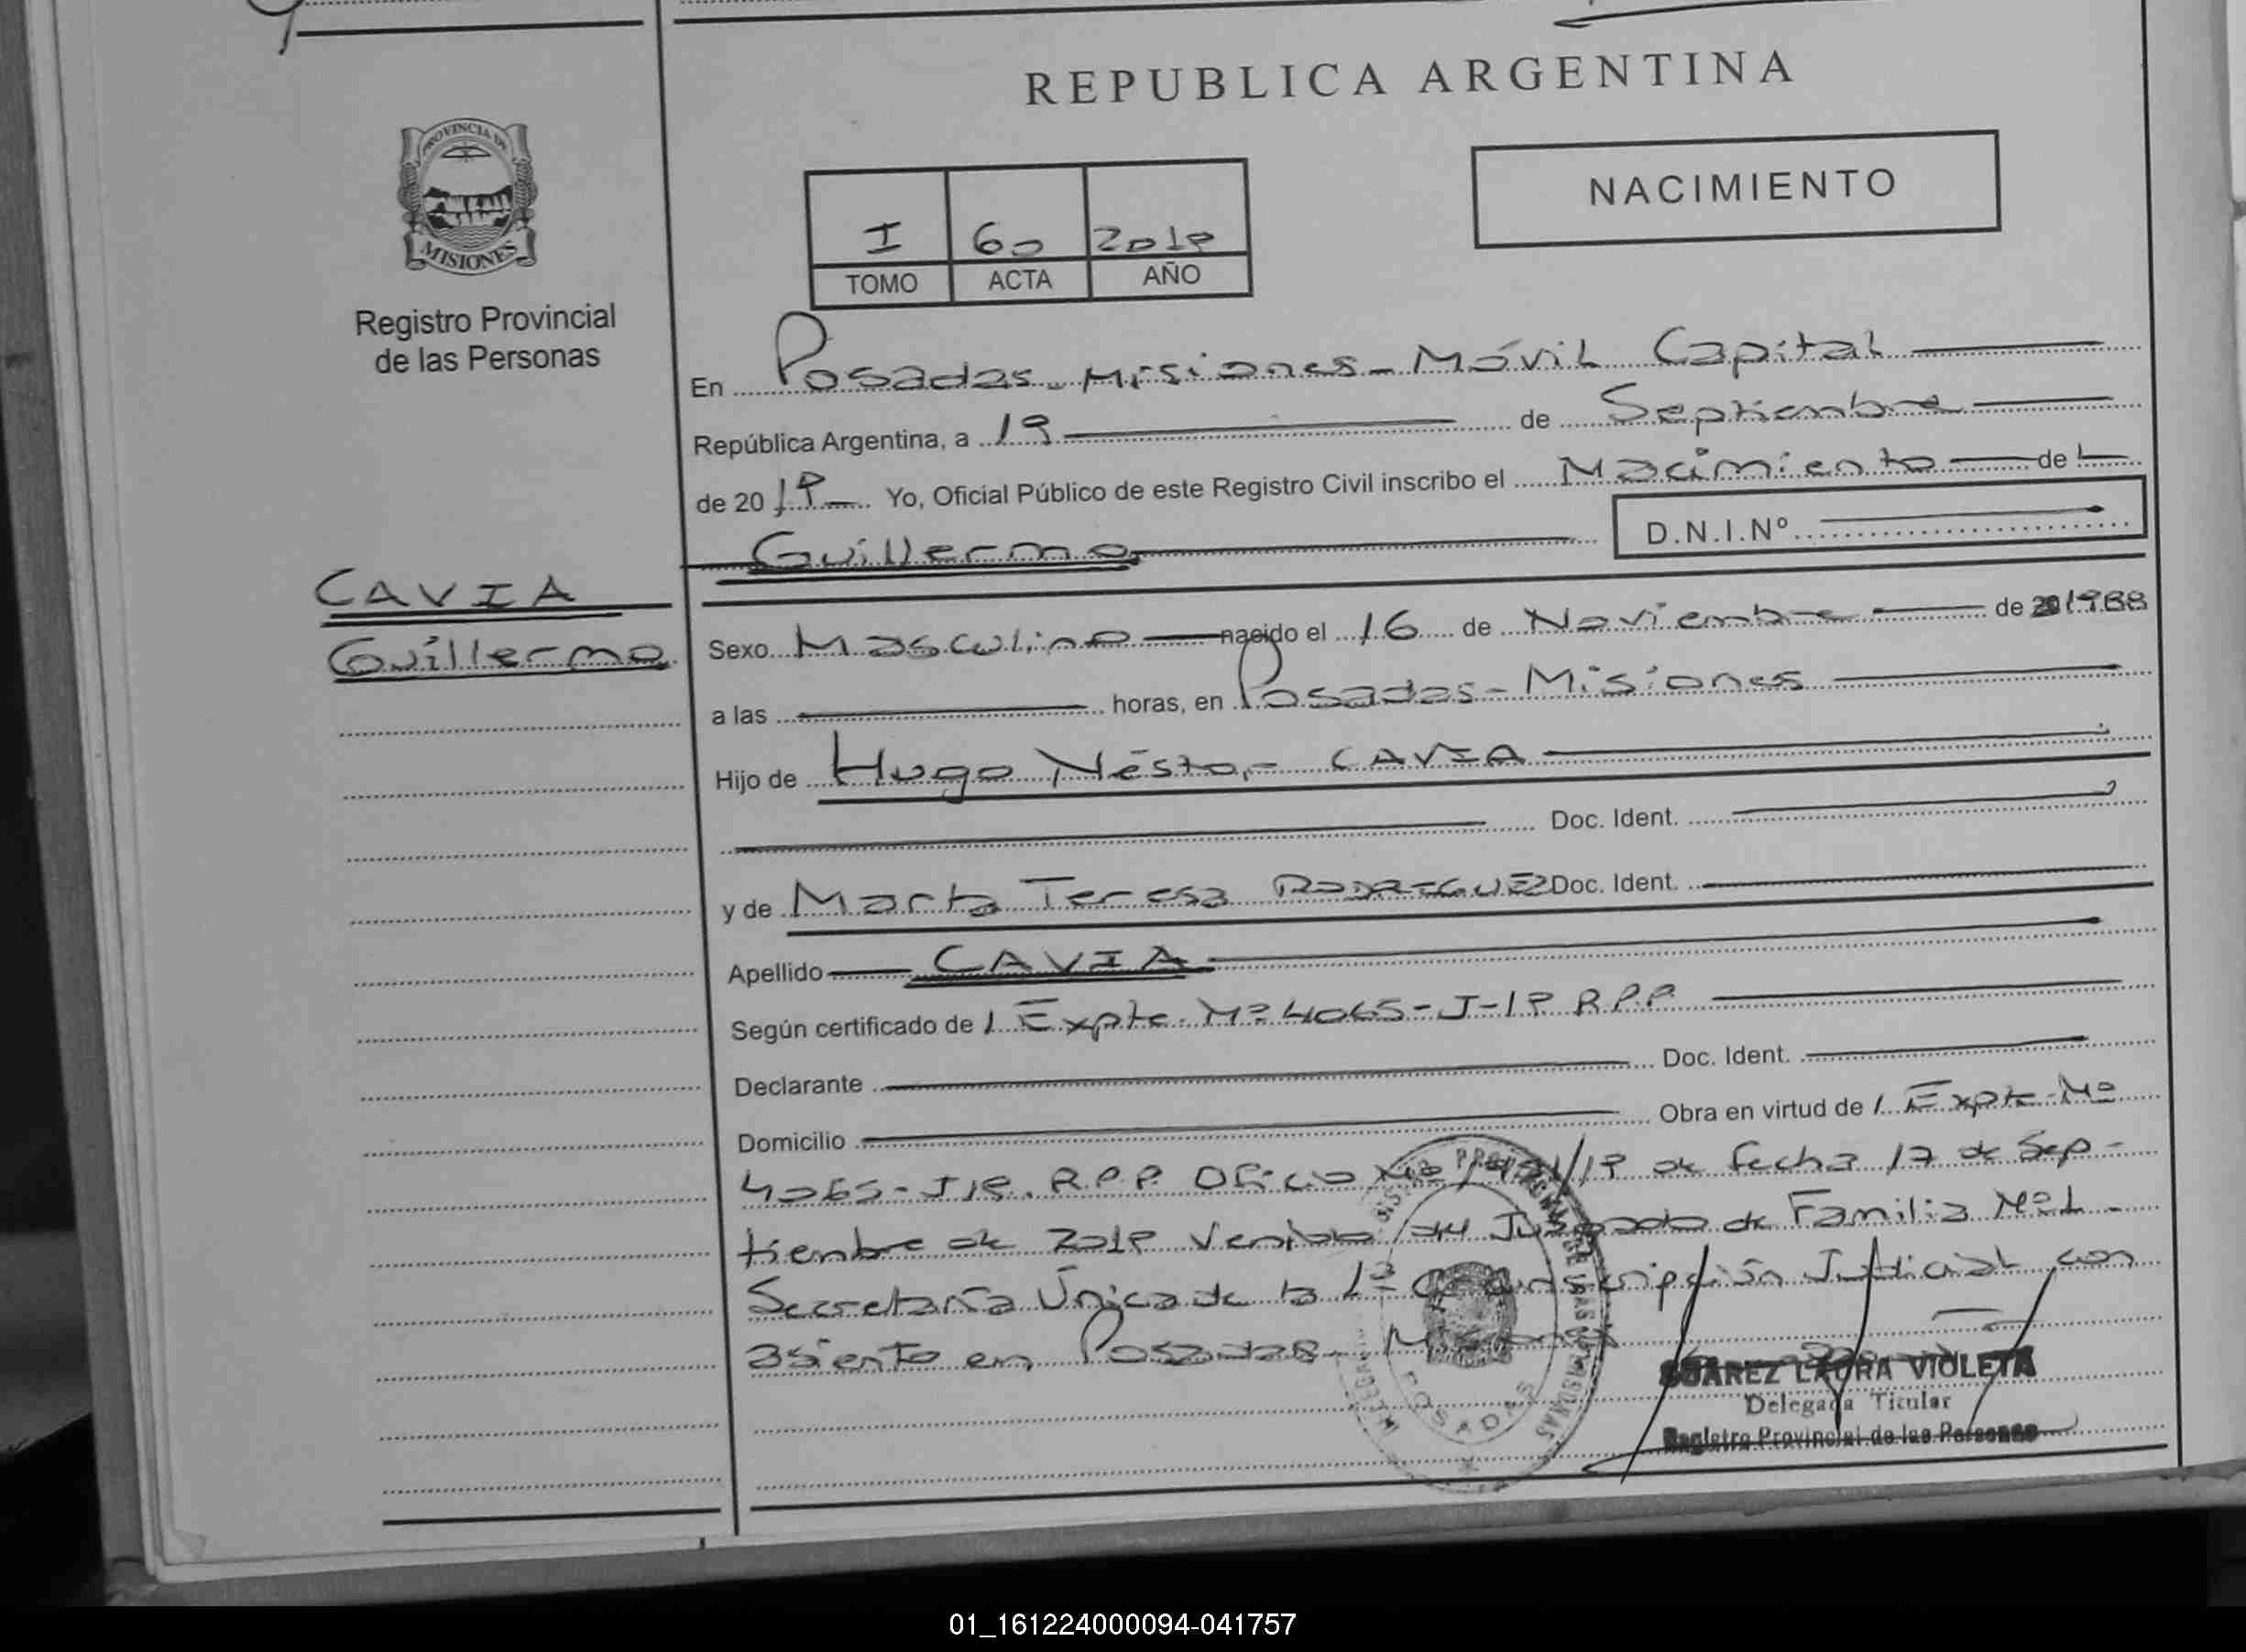 REPUBLICA ARGENTINA
NACIMIENTO
PROVINCIA DE
MISIONES
Registro Provincial
de las Personas
I 60 2018
TOMO ACTA AÑO
En Posadas - Misiones - Móvil Capital
República Argentina, a 19 de Septiembre
de 20 18 Yo, Oficial Público de este Registro Civil inscribo el Nacimiento de L
Guillermo D.N.I.Nº
CAVIA
Guillermo
Sexo Masculino nacido el 16 de Noviembre de 1988
a las horas, en Posadas - Misiones
Hijo de Hugo Néstor CAVIA
Doc. Ident.
y de Marta Teresa RODRIGUEZ Doc. Ident.
Apellido CAVIA
Según certificado de / Expte. Nº 4065-J-18 R.P.P.
Declarante Doc. Ident.
Domicilio Obra en virtud de / Expte. Nº
4065-J18. R.P.P. Oficio Nº /18 de fecha 17 de Sep-
tiembre de 2018 Venido del Juzgado de Familia Nº 1 -
Secretaría Única de la 1ª Circunscripción Judicial con
asiento en Posadas - Misiones
POSADAS
SUAREZ LAURA VIOLETA
Delegada Titular
Registro Provincial de las Personas
01_161224000094-041757